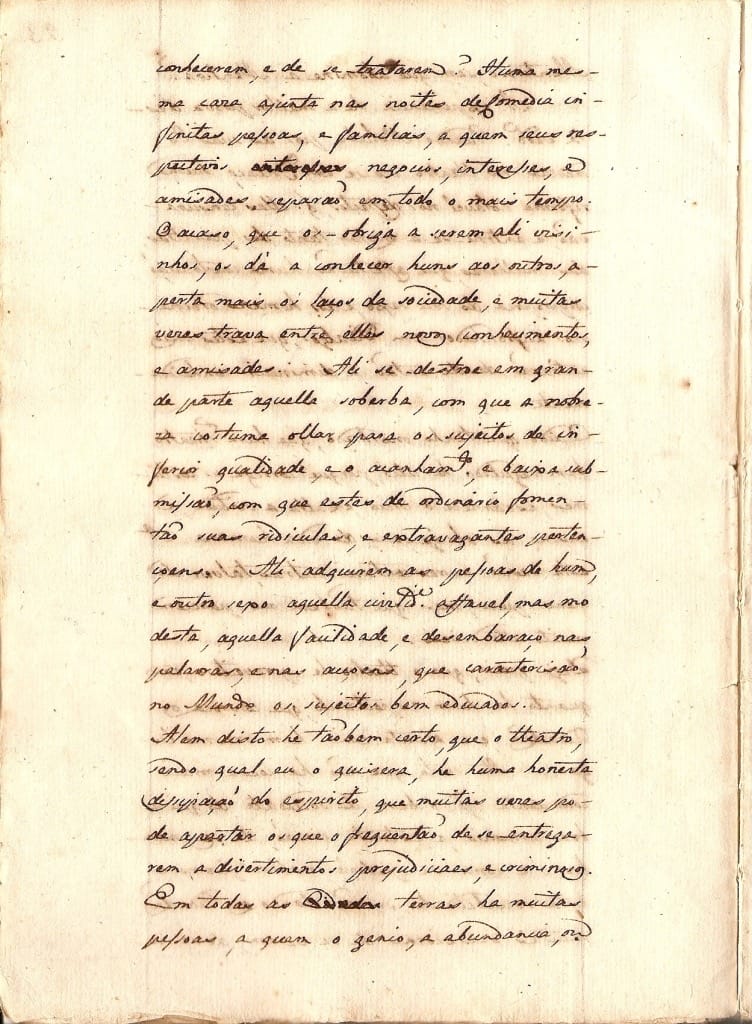 conhecerem, e de se tratarem? Huma mes-
ma caza ajunta nas noites de Comedia in-
finitas pessoas, e familias, a quem seus res-
pectivos negocios, interesses, e
amisades, separaõ em todo o mais tempo.
O acaso, que os obriga a serem ali visi-
nhos, os dá a conhecer huns aos outros, a-
perta mais os laços da sociedade, e muitas
vezes trava entre elles novos conhecimentos,
e amisades. Ali se destroe em gran-
de parte aquella soberba, com que a nobre-
za costuma olhar para os sujeitos de in-
ferior qualidade, e o acanham.to, e baixa sub-
missaõ, com que estes de ordinario fomen-
taõ suas ridiculas, e extravagantes perten-
çoens. Ali adquirem as pessoas de hum,
e outro sexo aquella civilid.e affavel, mas mo
desta, aquella facilidade, e desembaraço nas
palavras, e nas acçoens, que caracterisaõ
no Mundo os sujeitos bem educados.
Alem disto he taõbem certo, que o theatro,
sendo qual eu o quisera, he huma honesta
dissipaçaõ do espirito, que muitas vezes po-
de apartar os que o frequentaõ de se entrega-
rem a divertimentos prejudiciaes, e criminosos.
Em todas as terras ha muitas
pessoas, a quem o genio, a abundancia, ou